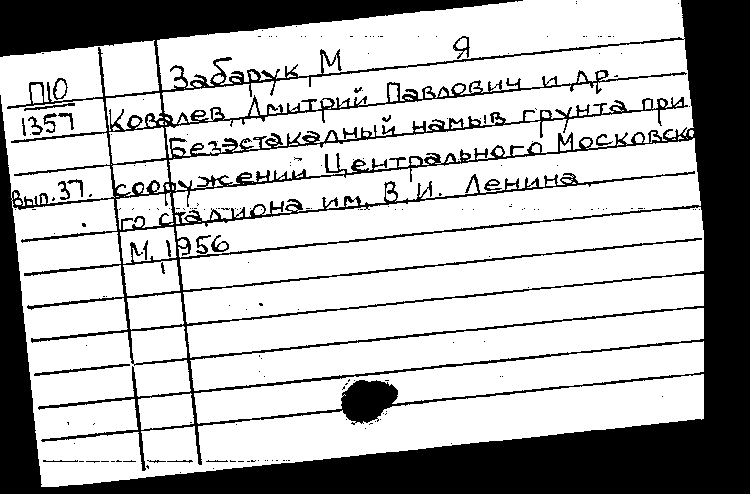 Забарук, М Я
П10
1357 Ковалев, Дмитрий Павлович и др.
Безэстакадный намыв грунта при
Вып. 37. сооружений Центрального Московско
го стадиона им. В. И. Ленина.
М, 1956